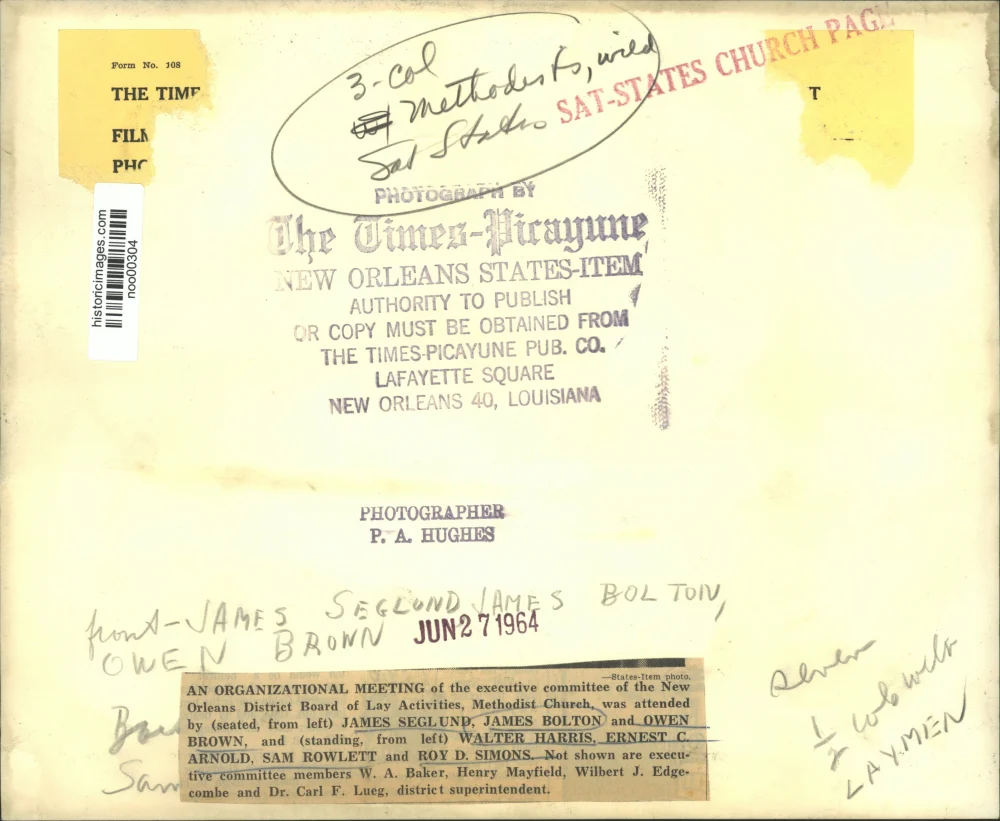 Form No. 108
THE TIME
FILM
PHO
T
3-col
Methodists, wild
Sat States
SAT-STATES CHURCH PAGE
historicimages.com
noo00304
PHOTOGRAPH BY
The Times-Picayune
NEW ORLEANS STATES-ITEM
AUTHORITY TO PUBLISH
OR COPY MUST BE OBTAINED FROM
THE TIMES-PICAYUNE PUB. CO.
LAFAYETTE SQUARE
NEW ORLEANS 40, LOUISIANA
PHOTOGRAPHER
P. A. HUGHES
front-JAMES SEGLUND JAMES BOLTON,
OWEN BROWN
JUN 27 1964
Bac
Sam
—States-Item photo.
AN ORGANIZATIONAL MEETING of the executive committee of the New
Orleans District Board of Lay Activities, Methodist Church, was attended
by (seated, from left) JAMES SEGLUND, JAMES BOLTON and OWEN
BROWN, and (standing, from left) WALTER HARRIS, ERNEST C.
ARNOLD, SAM ROWLETT and ROY D. SIMONS. Not shown are execu-
tive committee members W. A. Baker, Henry Mayfield, Wilbert J. Edge-
combe and Dr. Carl F. Lueg, district superintendent.
seven
1/2
LAYMEN